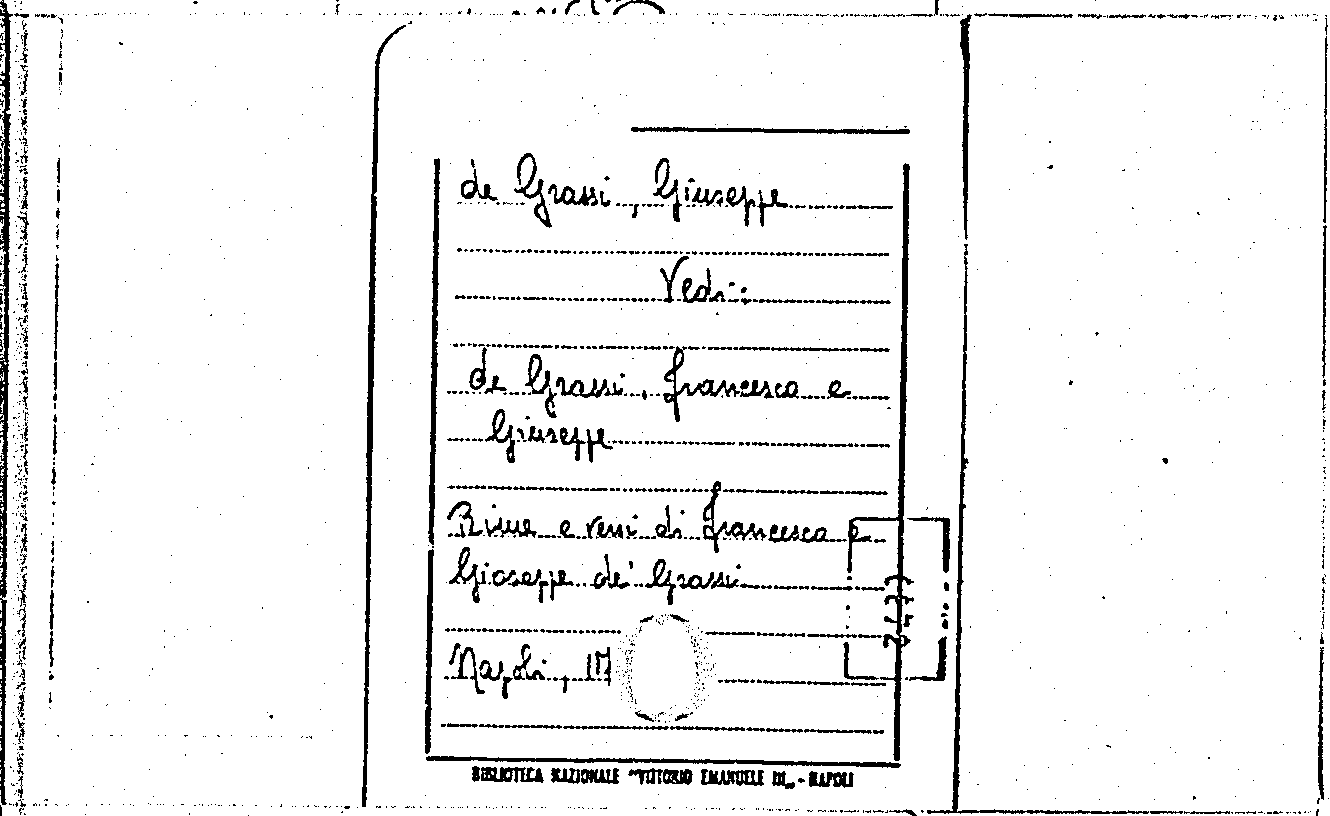 de Grassi, Giuseppe
Vedi:
de Grassi, Francesco e
Giuseppe
Rime e versi di Francesco e
Gioseppe de' Grassi
Napoli, 17
BIBLIOTECA NAZIONALE "VITTORIO EMANUELE III„ - NAPOLI